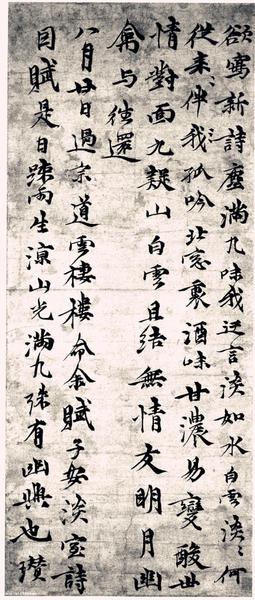 欲寫新詩塵滿几味我迂言淡如水白雲淡〻何
從来伴我孤吟北窓裏酒味甘濃易變酸世
情對面九疑山白雲且結無情友明月幽
禽与往還
八月廿日過宗道雲棲樓命余賦子安淡室詩
因賦是日疎雨生涼山光滿几殊有幽興也瓚